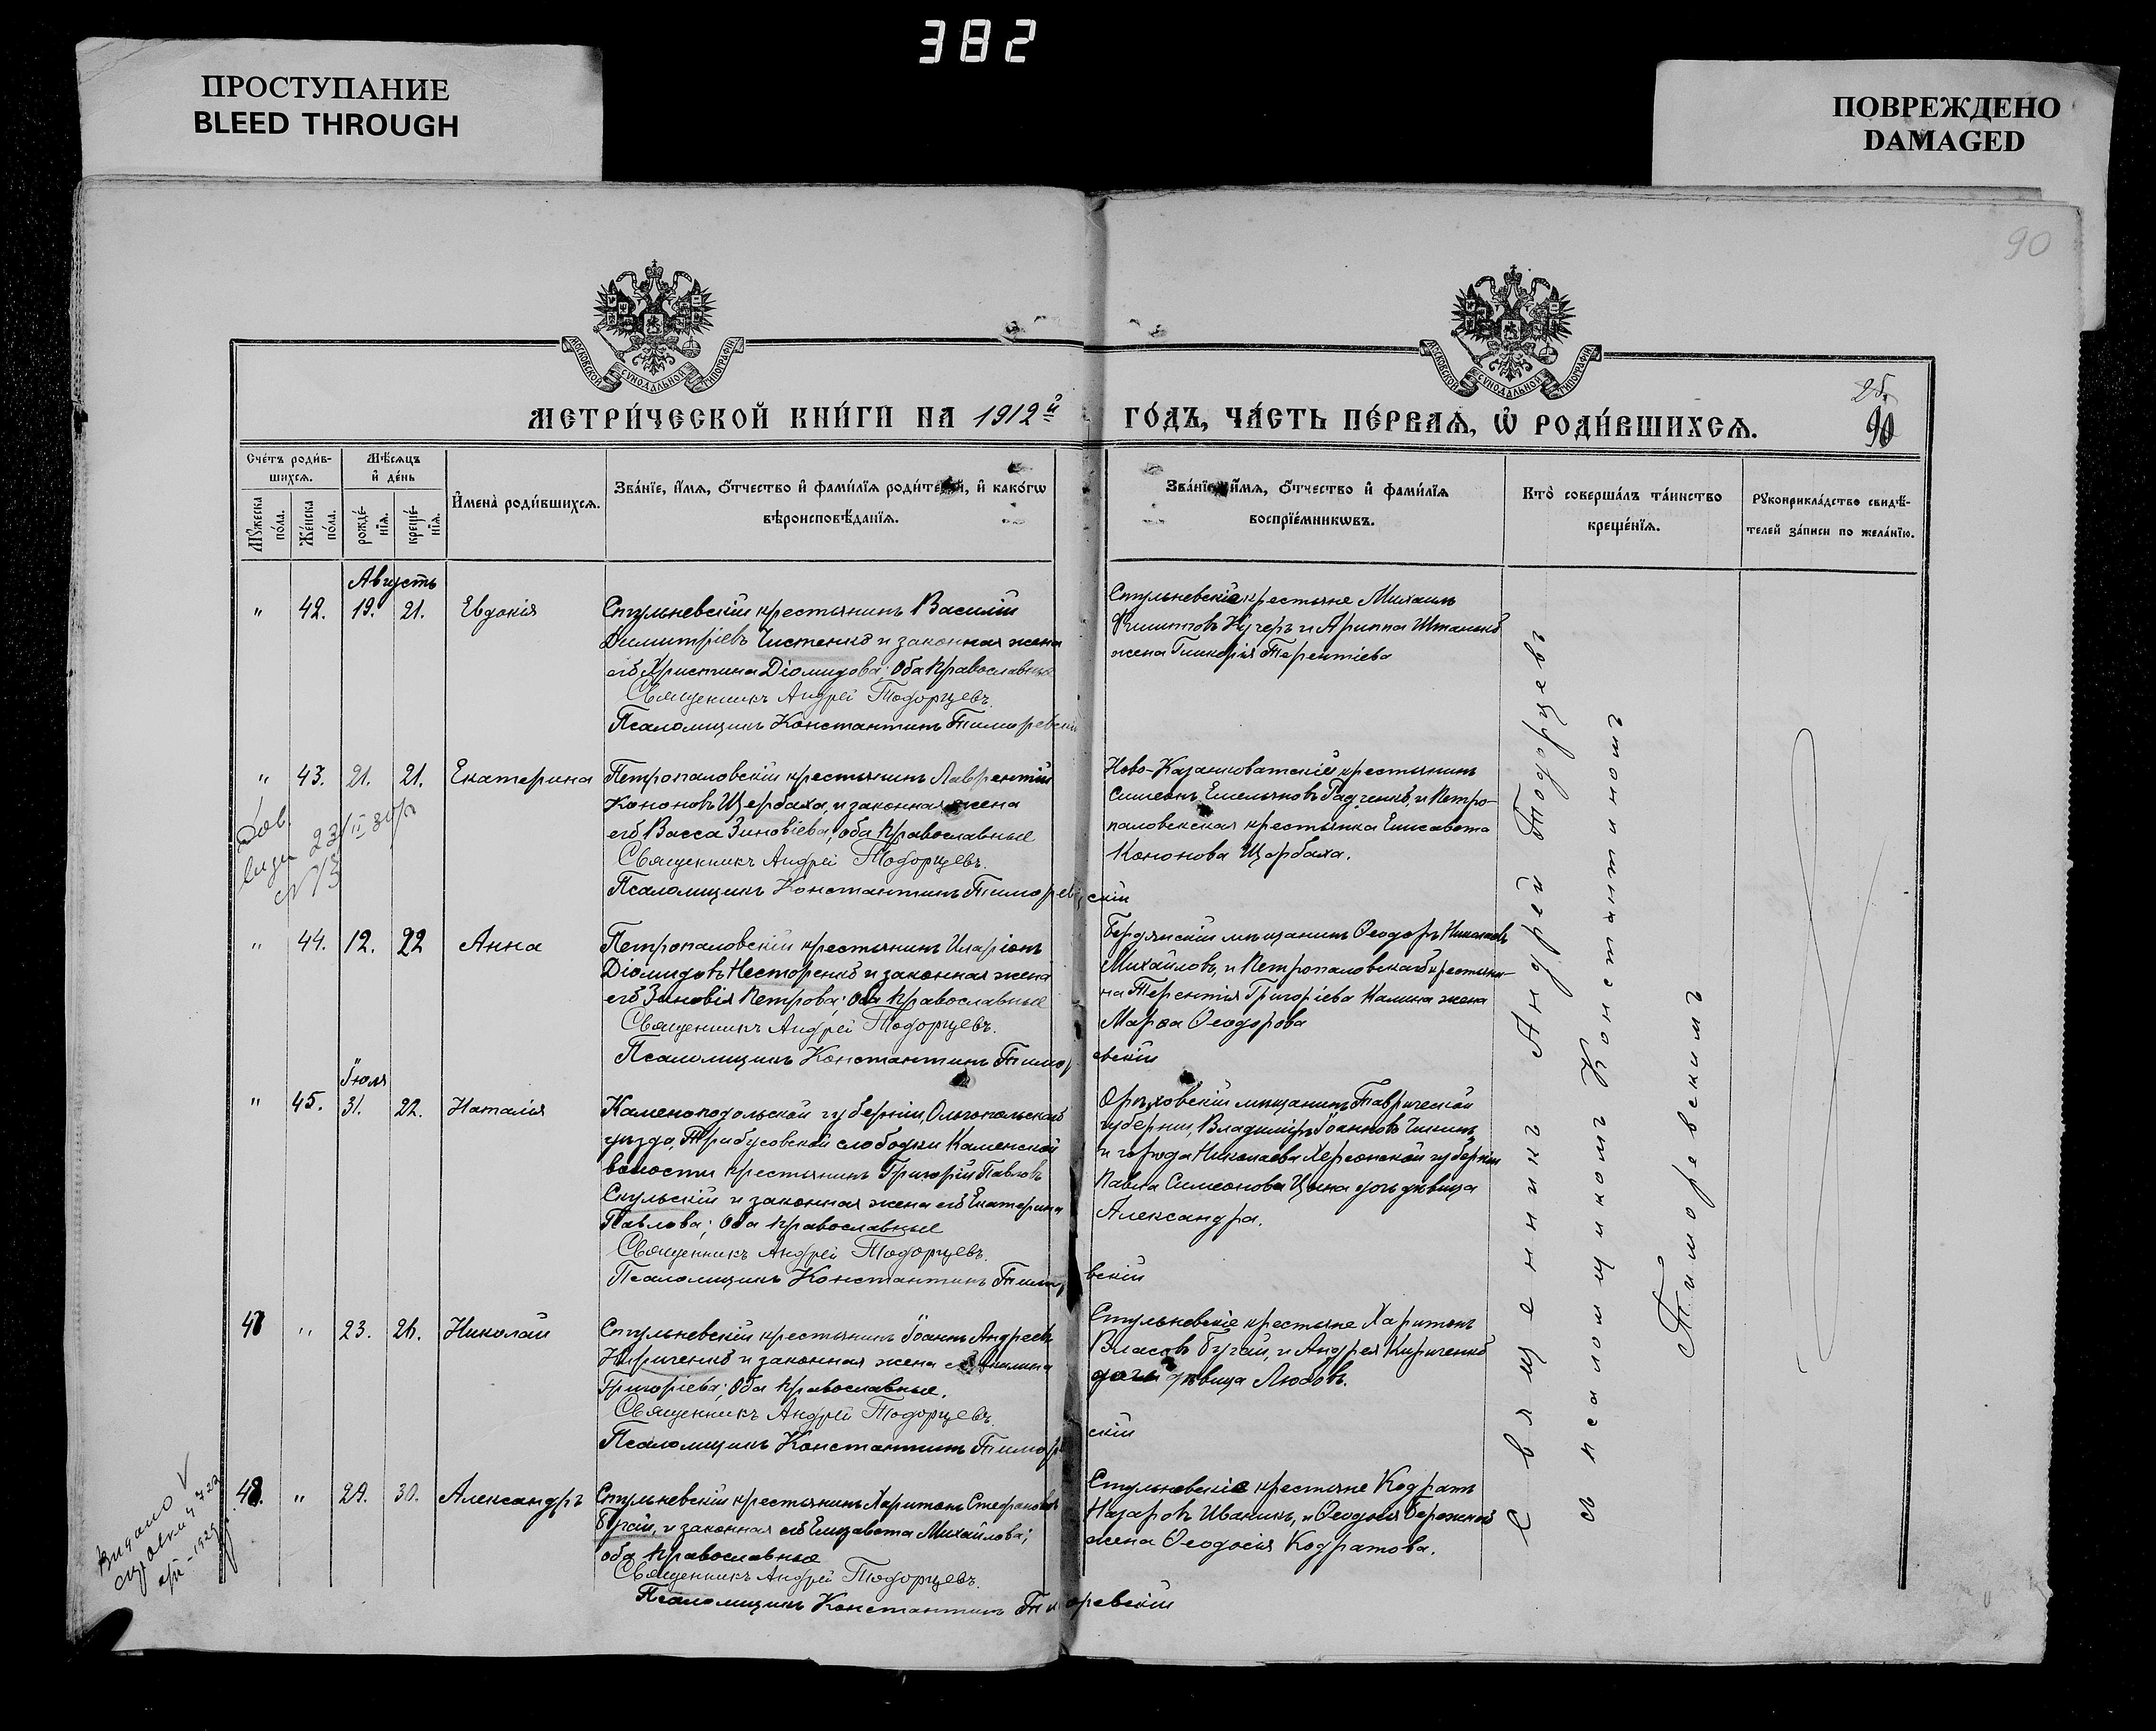 382
ПРОСТУПАНИЕ
BLEED THROUGH
ПОВРЕЖДЕНО
DAMAGED
90
МОСКОВСКОЙ СѴНОДАЛЬНОЙ ТИПОГРАФІИ
МОСКОВСКОЙ СѴНОДАЛЬНОЙ ТИПОГРАФІИ
25.
90
МЕТРИ́ЧЕСКОЙ КНИ́ГИ НА 1912й ГО́ДЪ, ЧА́СТЬ ПЕ́РВАЯ, Ѡ РОДИ́ВШИХСЯ.
Сче́тъ роди́в-
шихся.
Мѣ́сяцъ
и де́нь
Му́жеска
по́ла.
Же́нска
по́ла.
рожде́-
нїя.
креще́-
нїя.
Имена̀ роди́вшихся.
Зва́нїе, и́мя, о́тчество и фами́лїя роди́телей, и како́гѡ
вѣроисповѣ́данїя.
Зва́нїе, и́мя, о́тчество и фами́лїя
воспрїе́мникѡвъ.
Кто̀ соверша́лъ та́инство
креще́нїя.
Рукоприкла́дство свидѣ́-
телей за́писи по жела́нїю.
Августъ
" 42. 19. 21. Евдокія
Стульневскій крестьянинъ Василій
Димитріевъ Чистенко и законная жена
его Христина Діомидова; оба православные
Священникъ Андрей Тодорцевъ.
Псаломщикъ Константинъ Тиморевскій
Стульневскіе крестьяне Михаилъ
Филипповъ Кучеръ и
жена Терентіева
" 43. 21. 21. Екатерина
Петропаловскій крестьянинъ Лаврентій
Кононовъ Щербаха, и законная жена
его Васса Зиновіева; оба православные
Священникъ Андрей Тодорцевъ.
Псаломщикъ Константинъ Тиморевскій
Ново-Казанковатскій крестьянинъ
Симеонъ Емельяновъ Радченко, и Петро-
паловская крестьянка Елисавета
Кононова Щербаха.
23/II 30р
N 13
" 44. 12. 22 Анна
Петропаловскій крестьянинъ Иларіонъ
Діомидовъ Несторенко и законная жена
его Зиновія Петрова; оба православные
Священникъ Андрей Тодорцевъ.
Псаломщикъ Константинъ Тиморевскій
Бердянскій мѣщанинъ Ѳеодоръ Николаевъ
Михайловъ, и Петропаловскаго крестьяни-
на Терентія Григоріева Калина жена
Марѳа Ѳеодорова
Іюля
" 45. 31. 22. Наталія
Каменоподольской губерніи, Ольгопольскаго
уѣзда, Трибусовской слободки Каменской
волости крестьянинъ Григорій Павловъ
Скульскій и законная жена его Екатерина
Павлова; оба православные
Священникъ Андрей Тодорцевъ.
Псаломщикъ Константинъ Тиморевскій
Орѣховскій мѣщанинъ Таврической
губерніи, Владиміръ Іоанновъ
и города Николаева Херсонской губерніи
Павла Симеонова дочь дѣвица
Александра.
" 23. 26. Николай
Стульневскій крестьянинъ Іоаннъ Андреевъ
Кириченко и законная жена его Акилина
Григоріева; оба православные.
Священникъ Андрей Тодорцевъ.
Псаломщикъ Константинъ Тиморевскій
Стульневскіе крестьяне Харитонъ
Власовъ Бугай, и Андрея Кириченко
дочь дѣвица Любовь.
48. " 29. 30. Александръ
Стульневскій крестьянинъ Харитонъ Стефановъ
Бугай, и законная его Елизавета Михайлова;
оба православные
Священникъ Андрей Тодорцевъ.
Псаломщикъ Константинъ Тиморевскій
Стульневскіе крестьяне Кодратъ
Назаровъ Иваникъ, и Ѳеодосія Бережной
жена Ѳеодосія Кодратова.
Видано
Священникъ Андрей Тодорцевъ
с псаломщикомъ Константиномъ
Тиморевскимъ